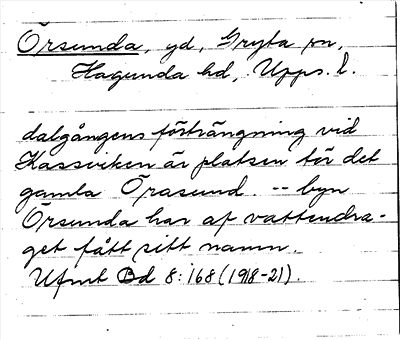 Örsunda, yd, Gryta sn,
Hagunda hd, Upps. l.
dalgångens förträngning vid
Hassviken är platsen för det
gamla Örasund. -- byn
Örsunda har af vattendra-
get fått sitt namn.
Ufmt Bd 8:168 (1918-21).